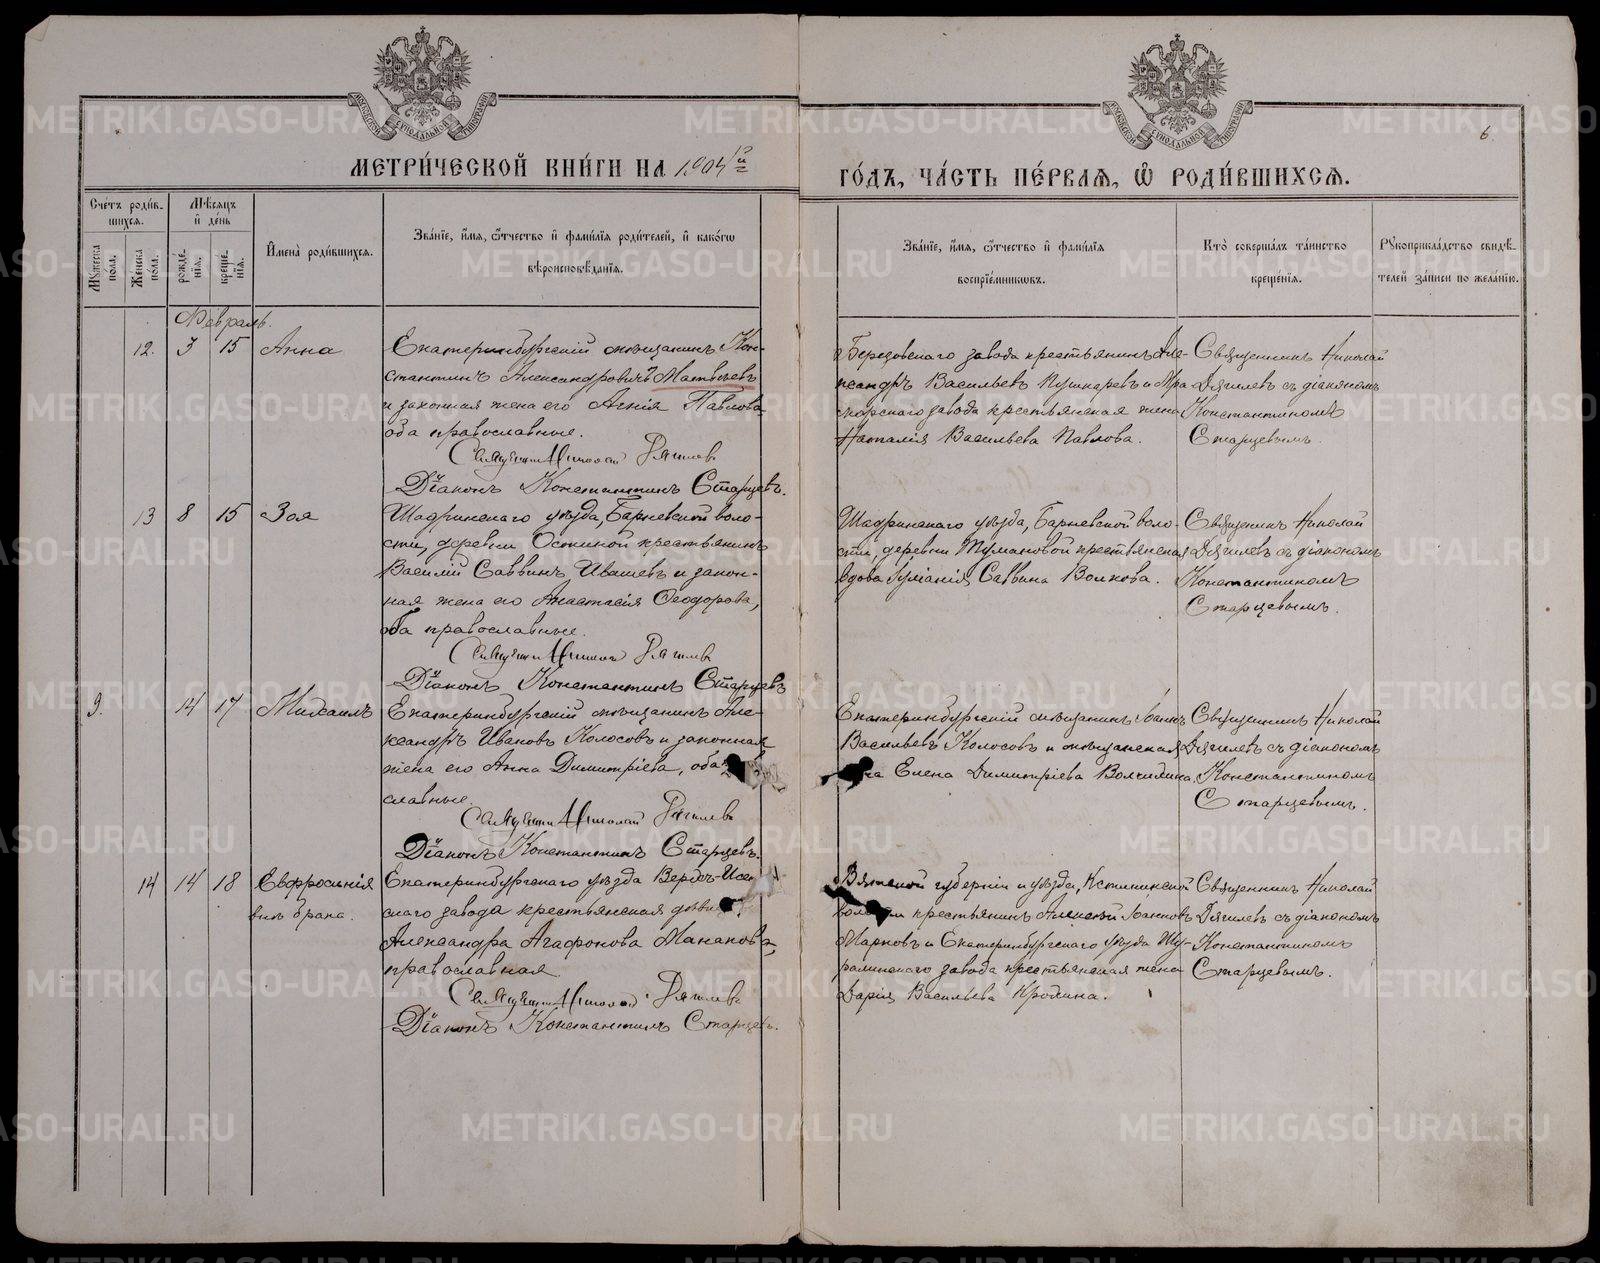 МЕТРИ́ЧЕСКОЙ КНИ́ГИ НА 1904й
ГО́ДЪ, ЧА́СТЬ ПЕ́РВАѦ, Ѿ РОДИ́ВШИХСѦ.
6
Сче́тъ роди́в-
шихсѧ.
Мѣсѧцъ
и де́нь
Мꙋжеска по́ла.
Же́нска по́ла.
рожде́нїѧ.
креще́нїѧ.
Имена̀ роди́вшихсѧ.
Зва́нїе, и́мѧ, ѻ́тчество и фами́лїѧ роди́телей, и како́гѡ
вѣроисповѣ́данїѧ.
Зва́нїе, и́мѧ, ѻ́тчество и фами́лїѧ
воспрїе́мникѡвъ.
Кто̀ соверша́лъ та́инство
креще́нїѧ.
Рꙋкоприкла́дство свидѣ́-
телей за́писи по жела́нїю.
Февраль.
12. 3 15 Анна
Екатеринбургскій мѣщанинъ Кон-
стантинъ Александровичъ Матвѣевъ
и законная жена его Агнія Павлова,
оба православные.
Священникъ Николай Дягилевъ
Діаконъ Константинъ Старцевъ.
Березовскаго завода крестьянинъ Але-
ксандръ Васильевъ Пушкаревъ и Мра
морскаго завода крестьянская жена
Наталія Васильева Павлова.
Священникъ Николай
Дягилевъ съ діакономъ
Константиномъ
Старцевымъ.
13 8 15 Зоя
Шадринскаго уѣзда, Барневской воло-
сти, деревни Осткиной крестьянинъ
Василій Саввинъ Ивашевъ и закон-
ная жена его Анастасія Ѳеодорова,
оба православные.
Священникъ Николай Дягилевъ
Діаконъ Константинъ Старцевъ
Шадринскаго уѣзда, Барневской воло-
сти, деревни Тумановой крестьянская
вдова Іуліанія Саввина Волкова.
Священникъ Николай
Дягилевъ съ діакономъ
Константиномъ
Старцевымъ.
9. 14 17 Михаилъ
Екатеринбургскій мѣщанинъ Але-
ксандръ Ивановъ Колосовъ и законная
жена его Анна Димитріева, оба
славные.
Священникъ Николай Дягилевъ
Діаконъ Константинъ Старцевъ.
Екатеринбургскій мѣщанинъ Іоаннъ
Васильевъ Колосовъ и мѣщанская
Елена Димитріева
Священникъ Николай
Дягилевъ съ діакономъ
Константиномъ
Старцевымъ.
14 14 18 Евфросинія
внѣ брака.
Екатеринбургскаго уѣзда Верхъ-Исет
скаго завода крестьянская дѣвица
Александра Агафонова Манакова,
православная
Священникъ Николай Дягилевъ
Діаконъ Константинъ Старцевъ.
Вятской губерніи и уѣзда, Кстининской
волости крестьянинъ Алексѣй Іоанновъ
Марковъ и Екатеринбургскаго уѣзда Шу-
ралинскаго завода крестьянская жена
Дарія Васильева
Священникъ Николай
Дягилевъ съ діакономъ
Константиномъ
Старцевымъ.
METRIKI.GASO-URAL.RU